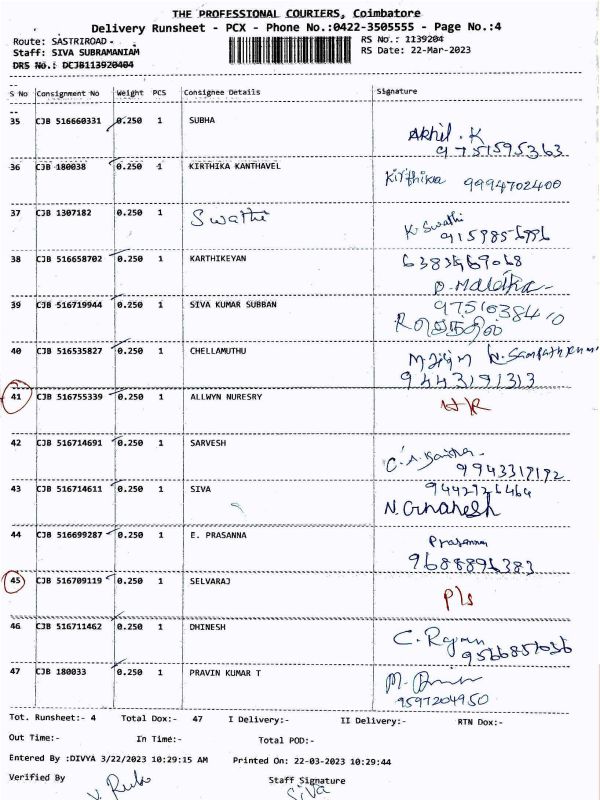 THE PROFESSIONAL COURIERS, Coimbatore
Delivery Runsheet - PCX - Phone No.:0422-3505555 - Page No.:4
Route: SASTRIROAD - RS No.: 1139204
Staff: SIVA SUBRAMANIAM RS Date: 22-Mar-2023
DRS No.: DCJB113920404
S No Consignment No Weight PCS Consignee Details Signature
35 CJB 516660331 0.250 1 SUBHA Akhil. K
9751595363
36 CJB 180038 0.250 1 KIRTHIKA KANTHAVEL Kirthika 9994702400
37 CJB 1307182 0.250 1 Swathi K. Swathi
38 CJB 516658702 0.250 1 KARTHIKEYAN
39 CJB 516719944 0.250 1 SIVA KUMAR SUBBAN
40 CJB 516535827 0.250 1 CHELLAMUTHU
9443191313
41 CJB 516755339 0.250 1 ALLWYN NURESRY
42 CJB 516714691 0.250 1 SARVESH
43 CJB 516714611 0.250 1 SIVA
44 CJB 516699287 0.250 1 E. PRASANNA Prasanna
45 CJB 516709119 0.250 1 SELVARAJ P/s
46 CJB 516711462 0.250 1 DHINESH
47 CJB 180033 0.250 1 PRAVIN KUMAR T
9597204950
Tot. Runsheet:- 4 Total Dox:- 47 I Delivery:- II Delivery:- RTN Dox:-
Out Time:- In Time:- Total POD:-
Entered By :DIVYA 3/22/2023 10:29:15 AM Printed On: 22-03-2023 10:29:44
Verified By Staff Signature
Siva